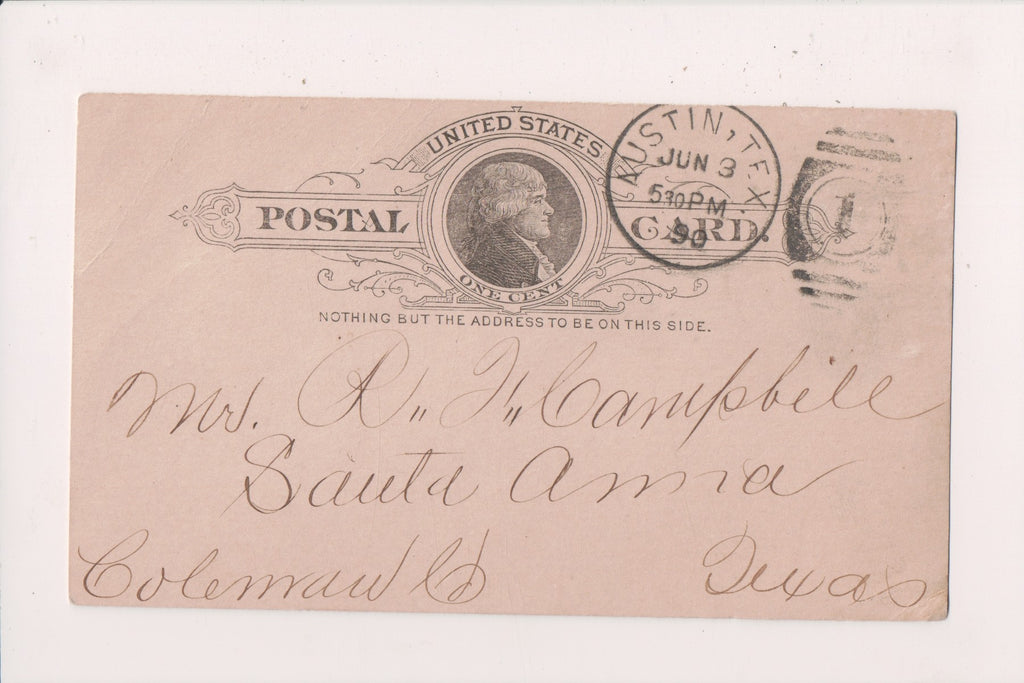 UNITED STATES
POSTAL CARD.
ONE CENT
AUSTIN, TEX
JUN 3
530PM
90
1
NOTHING BUT THE ADDRESS TO BE ON THIS SIDE.
Mrs. R. Campbell
Santa Anna
Coleman Co Texas